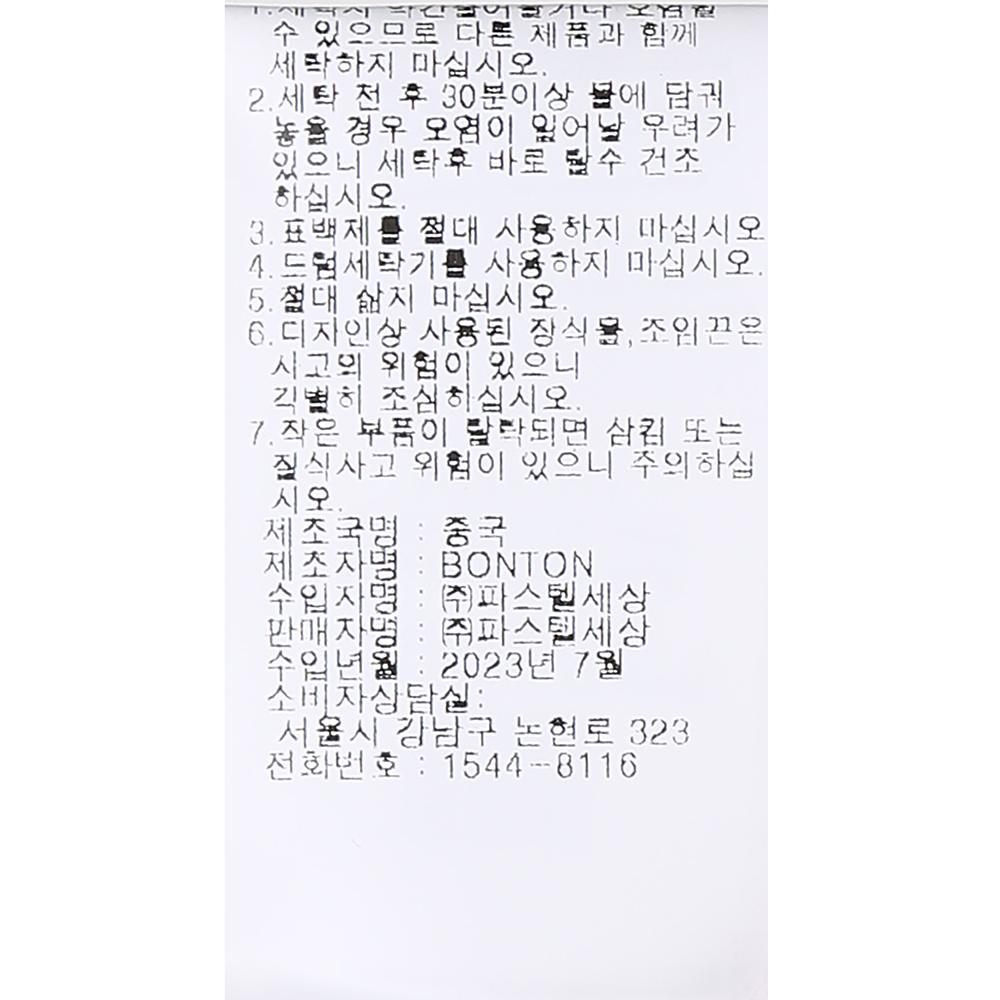 수 있으므로 다른 제품과 함께
세탁하지 마십시오.
2.세탁 전 후 30분이상 물에 담궈
놓을 경우 오염이 일어날 우려가
있으니 세탁후 바로 탈수 건조
하십시오.
3.표백제를 절대 사용하지 마십시오
4.드럼세탁기를 사용하지 마십시오.
5.절대 삶지 마십시오.
6.디자인상 사용된 장식물,조임끈은
사고의 위험이 있으니
각별히 조심하십시오.
7.작은 부품이 탈락되면 삼킴 또는
질식사고 위험이 있으니 주의하십
시오.
제조국명 : 중국
제조자명 : BONTON
수입자명 : ㈜파스텔세상
판매자명 : ㈜파스텔세상
수입년월 : 2023년 7월
소비자상담실:
서울시 강남구 논현로 323
전화번호 : 1544-8116